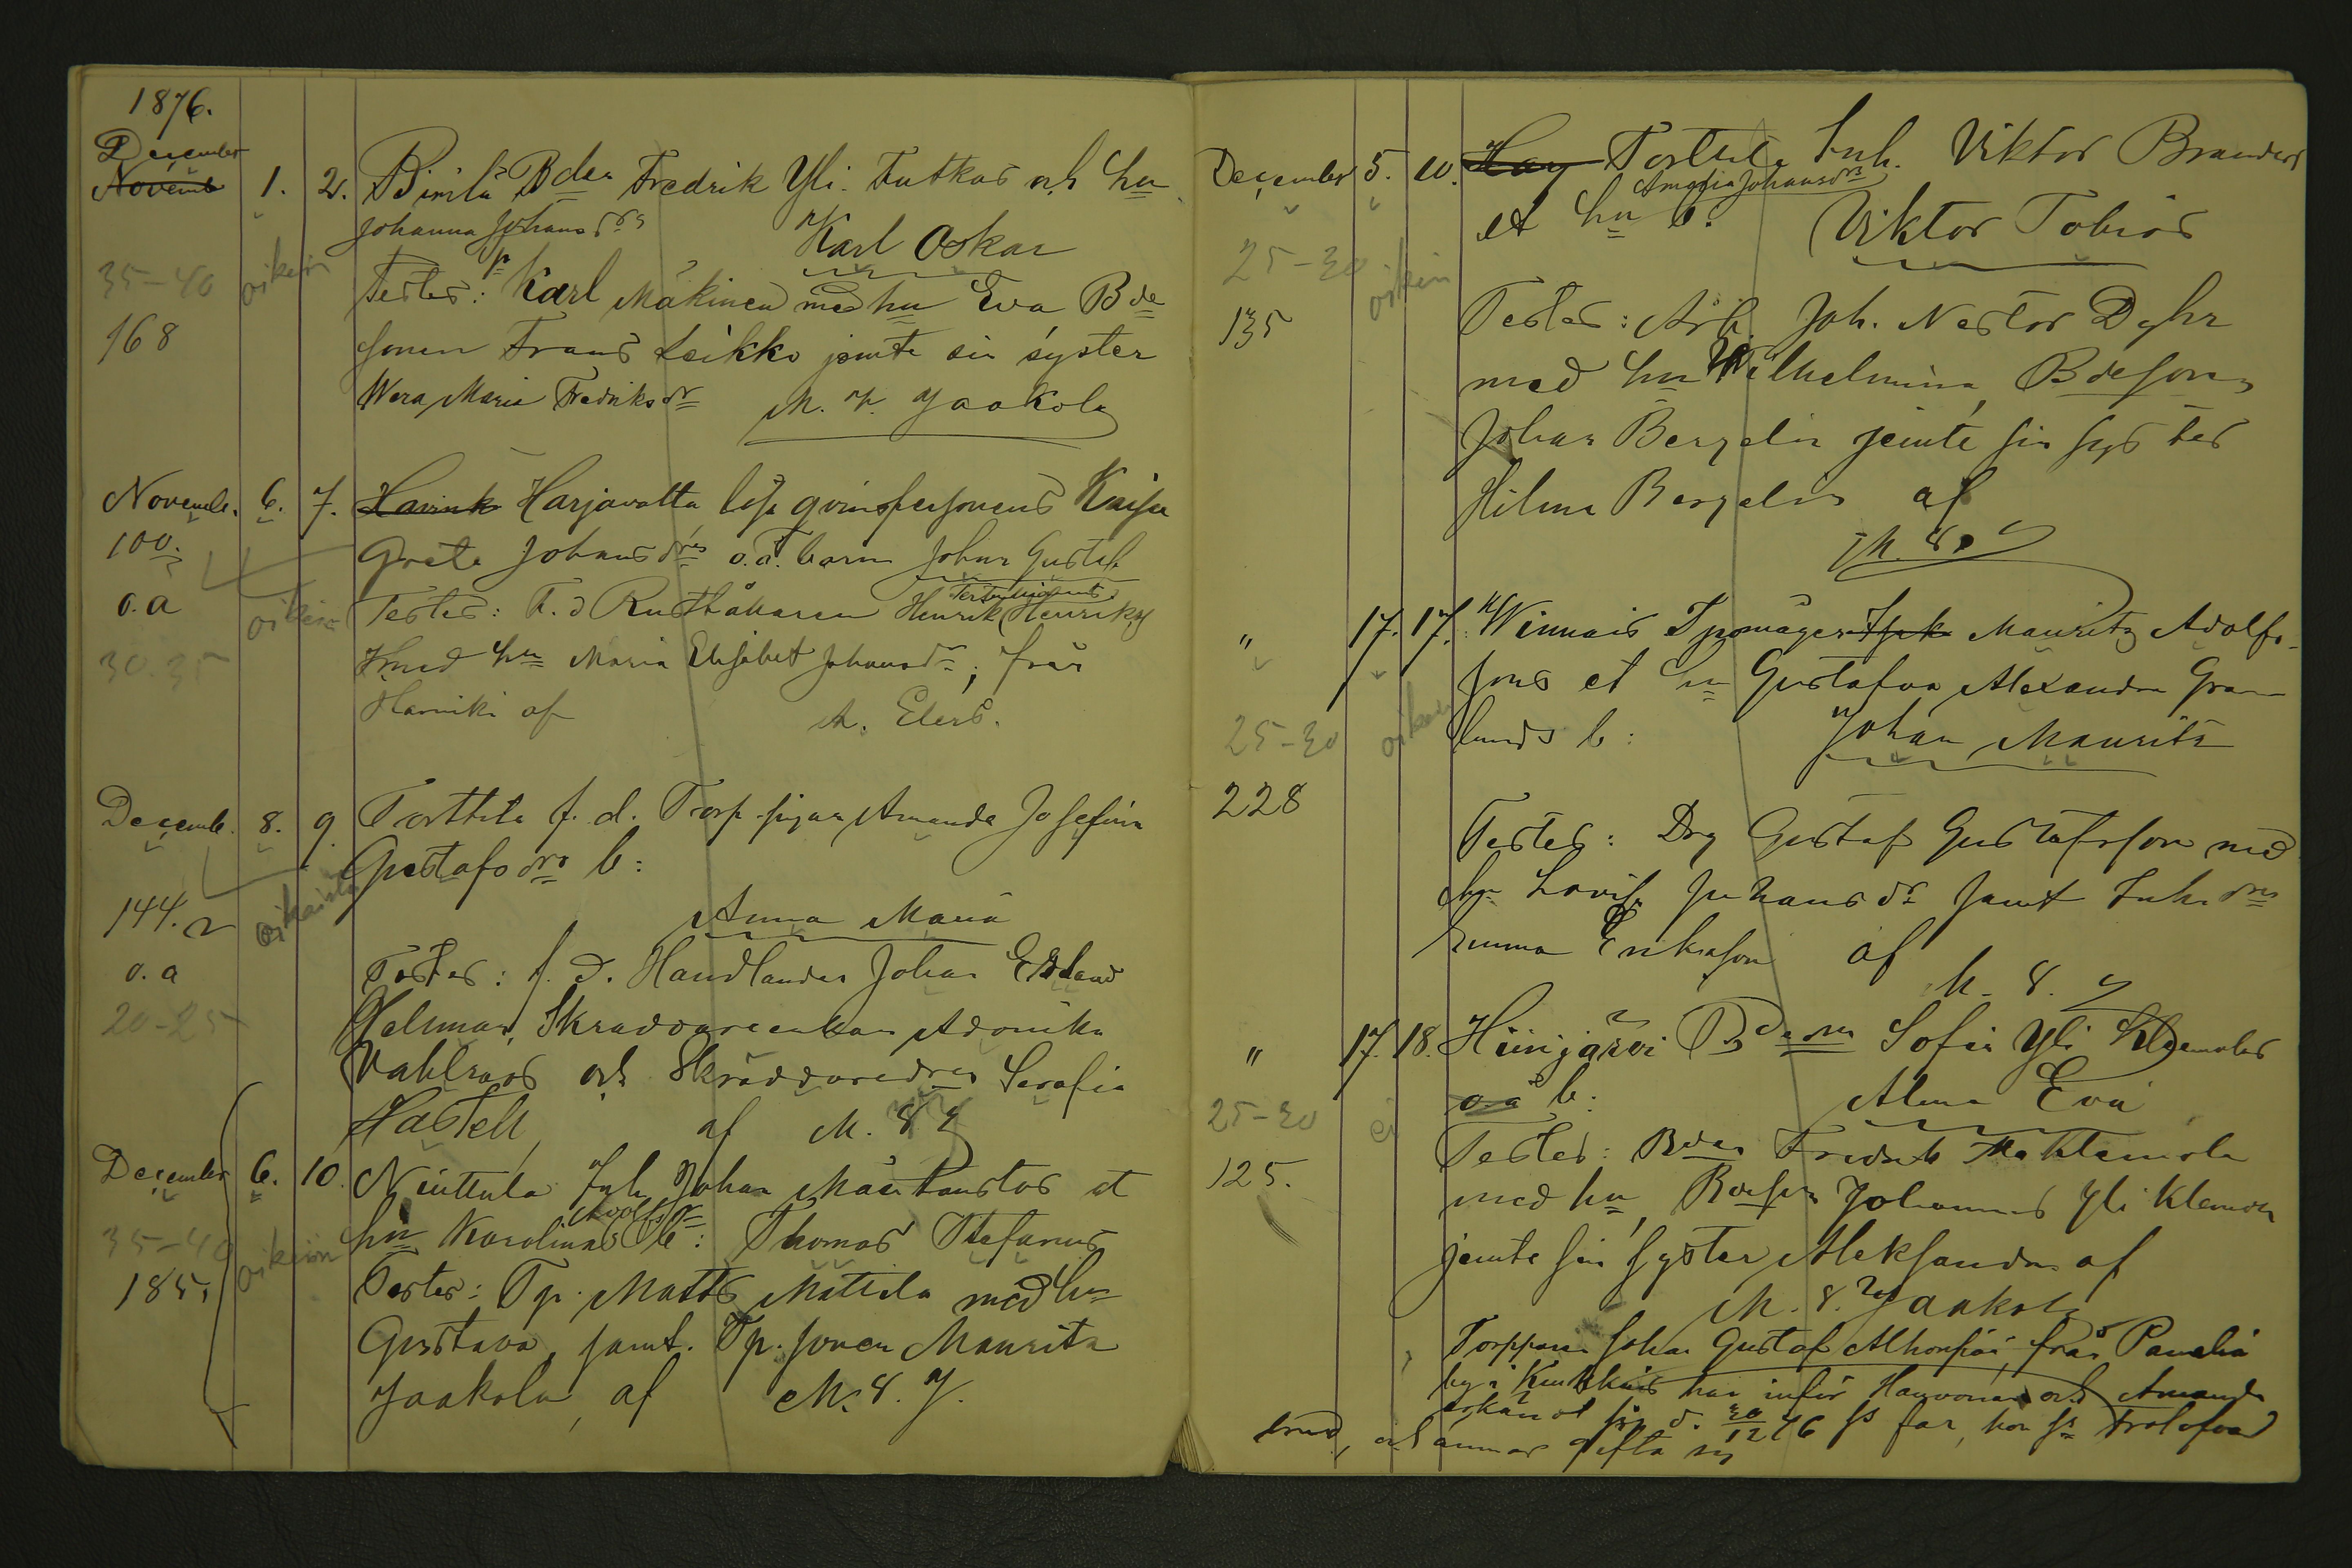 1876.
December
Novemb 1. 2. Pirilä Bden Fredrik Yli-Tutkas och hu
Johanna Johansdrs
Karl Oskar
35-40 oikein
Testes: Karl Mäkinen med hu Eva Bde
168
sonen Frans Leikko jemte sin syster
Wera Maria Fredriksdr M. Y. Jaakola
November 6. 7. Harjavalta lösa qvinspersonens Kaisa
100.
Greta Johansdrs o.ä. barn Johan Gustaf
o.a oikein
Testes: F. d Rusthållaren Henrik Henriks
30.35
med hu Maria Elisabet Johansdr, från
Hamiki af A. Elers.
Decemb. 8. 9. Torttila f. d. Torp. pigan Amanda Josefina
Gustafsdrs b:
144. oikaista
Anna Maria
o.a
Testes: f. d. Handlanden Johan Erland
20-25
Helsman, Skraddareenkan Adonika
Vahlroos och Skräddaredren Serafia
Hastell, af M. 8 Y
December 6. 10. Niuttula Inh Johan Mäntaustos et
Adolfsdr
35-40 oikein
hu Karolinas b: Thomas Stefanus
185.
Testes: Tp. Matts Mattila med hu
Gustava, samt. Tp. sonen Maurits
Jaakola, af M. 8. Y.
December 5. 10. Torttila Inh. Viktor Branders
Amalia Johansdrs
et hu b: Viktor Tobias
25-30 oikein
135
Testes: Arb. Joh. Nestor Dyhr
med hu Wilhelmina, Bdeson
Johan Bergelin jemte sin syster
Hilma Bergelin af
M. 8. Y
" 17. 17. Winnais Tpmågen Mauritz Adolfs-
sons et hu Gustafva Alexandra Gran
25-30 oikein
lunds b: Johan Maurits
228
Testes: Drg Gustaf Gustafsson med
hu Lovisa Juhansdr samt Inhdrn
Emma Eriksson af
M. 8. Y
" 17. 18. Hiirijärvi Bdedrs Sofia Yli Klemolas
o.ä b: Alma Eva
25-30 ei
Testes: Bden Fredrik Mahlamola
125.
med hu, Bdeson Johannes Yli Klemola
jemte sin syster Aleksandra af
M. 8. Jaakola
Torpparen Johan Gustaf Alhonpää, från Panelia
by i Kiukkais har inför Hanvonen och Amanda
erkänt sig d. 30/12 76 ss far, hon ss trolofvad
brud, och ämnar gifta sig